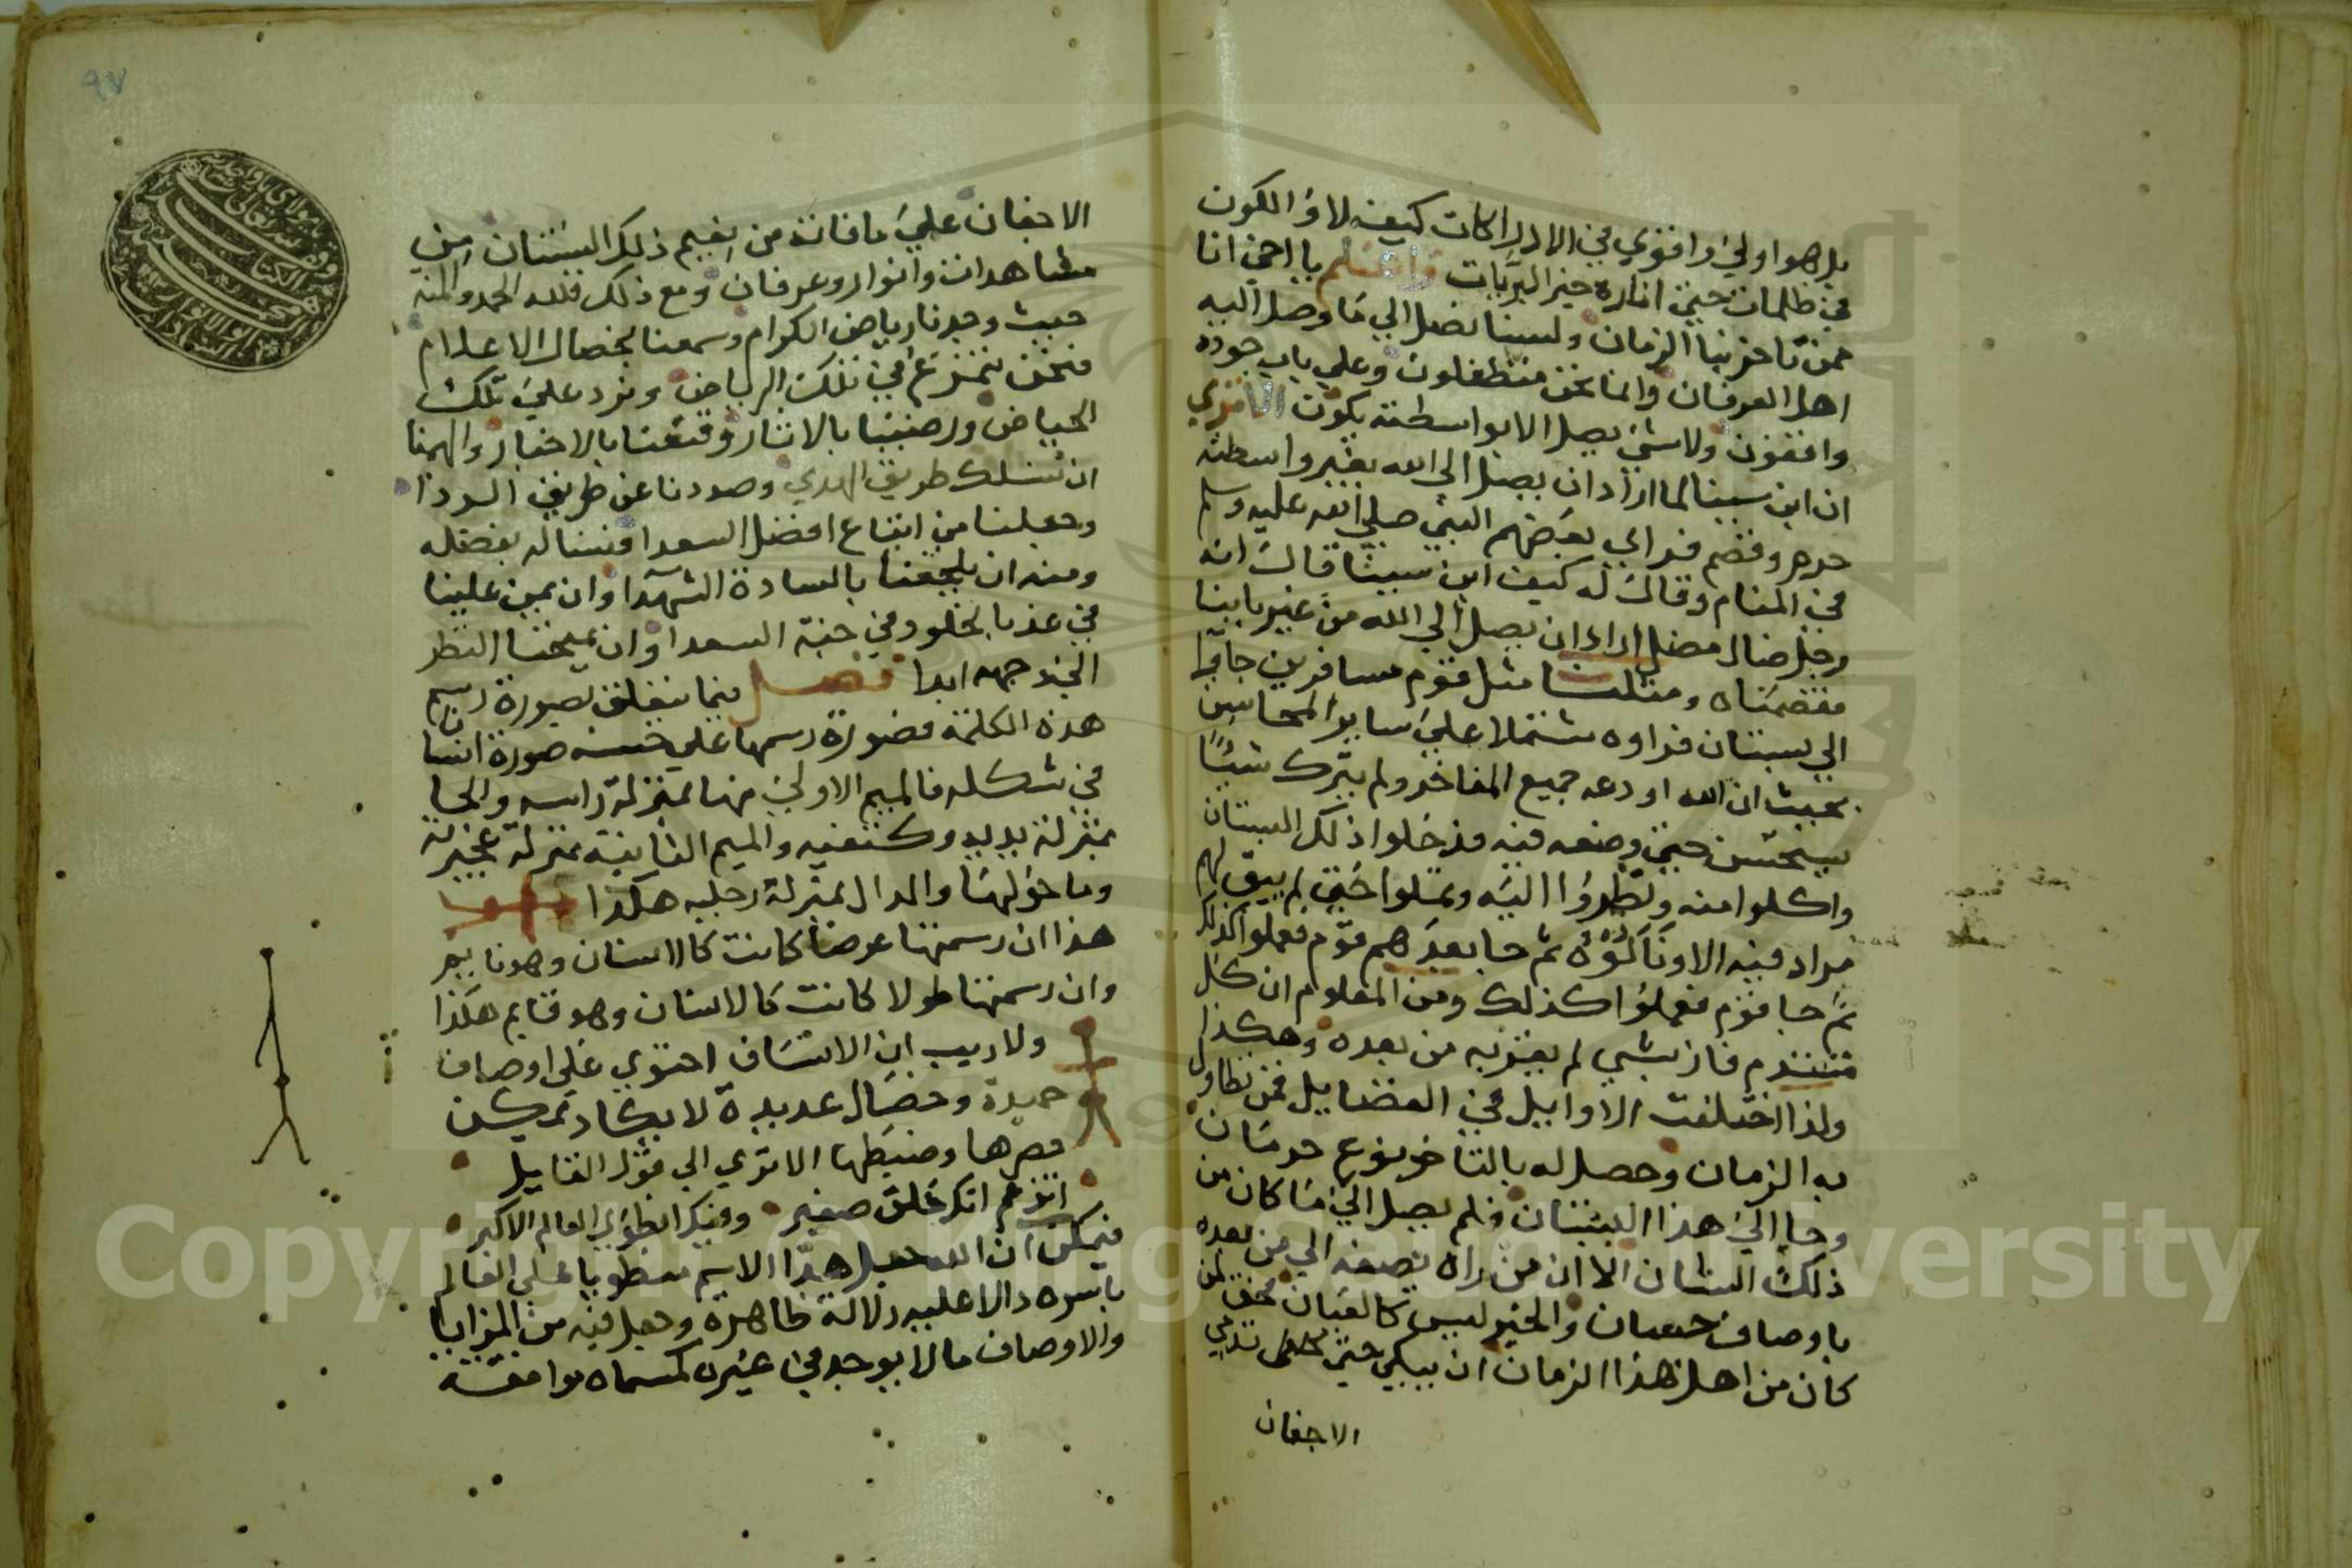 بل هو اولي واقوي في الادراكات كيف لا والكون
في ظلمات حتي اناره خير البريات واعلم يا اخي انا
ممن تاخر بنا الزمان ولسنا نصل الي ما وصل اليه
اهل العرفان وانما نحن متطفلون وعلي باب جوده
واقفون ولا شي يصل الا بواسطته يكون الا تري
ان ابن سينا لما اراد ان يصل الي الله بغير واسطته
حرم وقصم فراي بعضهم النبي صلي الله عليه وسلم
في المنام وقال له كيف ابن سينا قال انه
رجل ضال مضل اراد ان يصل الي الله من غير بابنا
فقصمناه ومثلنا مثل قوم مسافرين جاوا
الي بستان فراوه مشتملا علي ساير المحاسن
بحيث ان الله اودعه جميع المفاخر ولم يترك شيئا
يستحسن حتي وضعه فيه فدخلوا ذلك البستان
واكلوا منه ونظروا اليه وتملوا حتي لم يبق لهم
مراد فيه الا ونالوه ثم جا بعدهم قوم فعملوا كذلك
ثم جا قوم فعملوا كذلك ومن المعلوم ان كل
متقدم فاز بشي لم يفز به من بعده وهكذا
ولذا اختلفت الاوايل في الفضايل فمن تطاول
به الزمان وحصل له بالتاخر نوع حرمان
وجا الي هذا البستان فلم يصل الي ما كان من
ذلك الشان الا ان من راه يصفه الي من بعده
باوصاف حسان والخبر ليس كالعيان فحق لمن
كان من اهل هذا الزمان ان يبكي حتي تدمي
الاجفان
الاجفان علي ما فاته من نعيم ذلك البستان من
مشاهدات وانوار وعرفان ومع ذلك فلله الحمد والمنه
حيث وجدنا رياض الكرام وسمعنا بخصال الاعلام
فنحن نتمرغ في تلك الرياض ونرد علي تلك
الحياض ورضينا بالاثار وقنعنا بالاخبار والهمنا
ان نسلك طريق الهدي وصددنا عن طريق الردا
وجعلنا من اتباع افضل السعدا فنساله بفضله
ومنه ان يلحقنا بالسادة الشهدا وان يمن علينا
في غد بالخلود في جنة السعدا وان يمنحنا النظر
الي وجهه ابدا فصل فيما يتعلق بصورة رسم
هذه الكلمة فصورة رسمها علي صورة انسان
في شكله فالميم الاولي منها بمنزلة راسه والحا
بمنزلة يديه وكتفيه والميم الثانية بمنزلة عجيزته
وما حولهما والدال بمنزلة رجليه هكذا
هذا ان رسمتها عرضا كانت كالانسان وهو نايم
وان رسمتها طولا كانت كالانسان وهو قايم هكذا
ولا ريب ان الانسان احتوي علي اوصاف
حميدة وخصال عديدة لا يكاد يمكن
حصرها وضبطها الا تري الي قول القايل
اتزعم انك خلق صغير وفيك انطوي العالم الاكبر
فيمكن ان الله جعل هذا الاسم منطويا علي العالم
باسره دالا عليه دلالة ظاهرة وجعل فيه من المزايا
والاوصاف ما لا يوجد في غيره كمسماه موافقة
٩٧